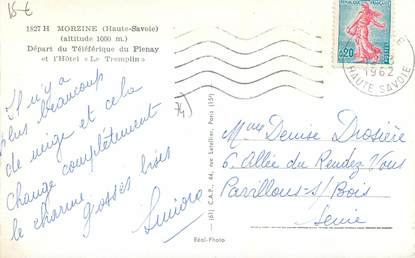 15 €
1827 H MORZINE (Haute-Savoie)
(altitude 1000 m.)
Départ du Téléférique du Plenay
et l'Hôtel « Le Tremplin »
Il n'y a
plus beaucoup
de neige et cela
change complètement
le charme. gosses bises
74
0,20
1962
HAUTE SAVOIE
(61) C.A.P., 44, rue Letellier, Paris (15e)
Mme Denise Drosière
6 Allée du Rendez Vous
Pavillons-s/Bois
Seine
Réal-Photo